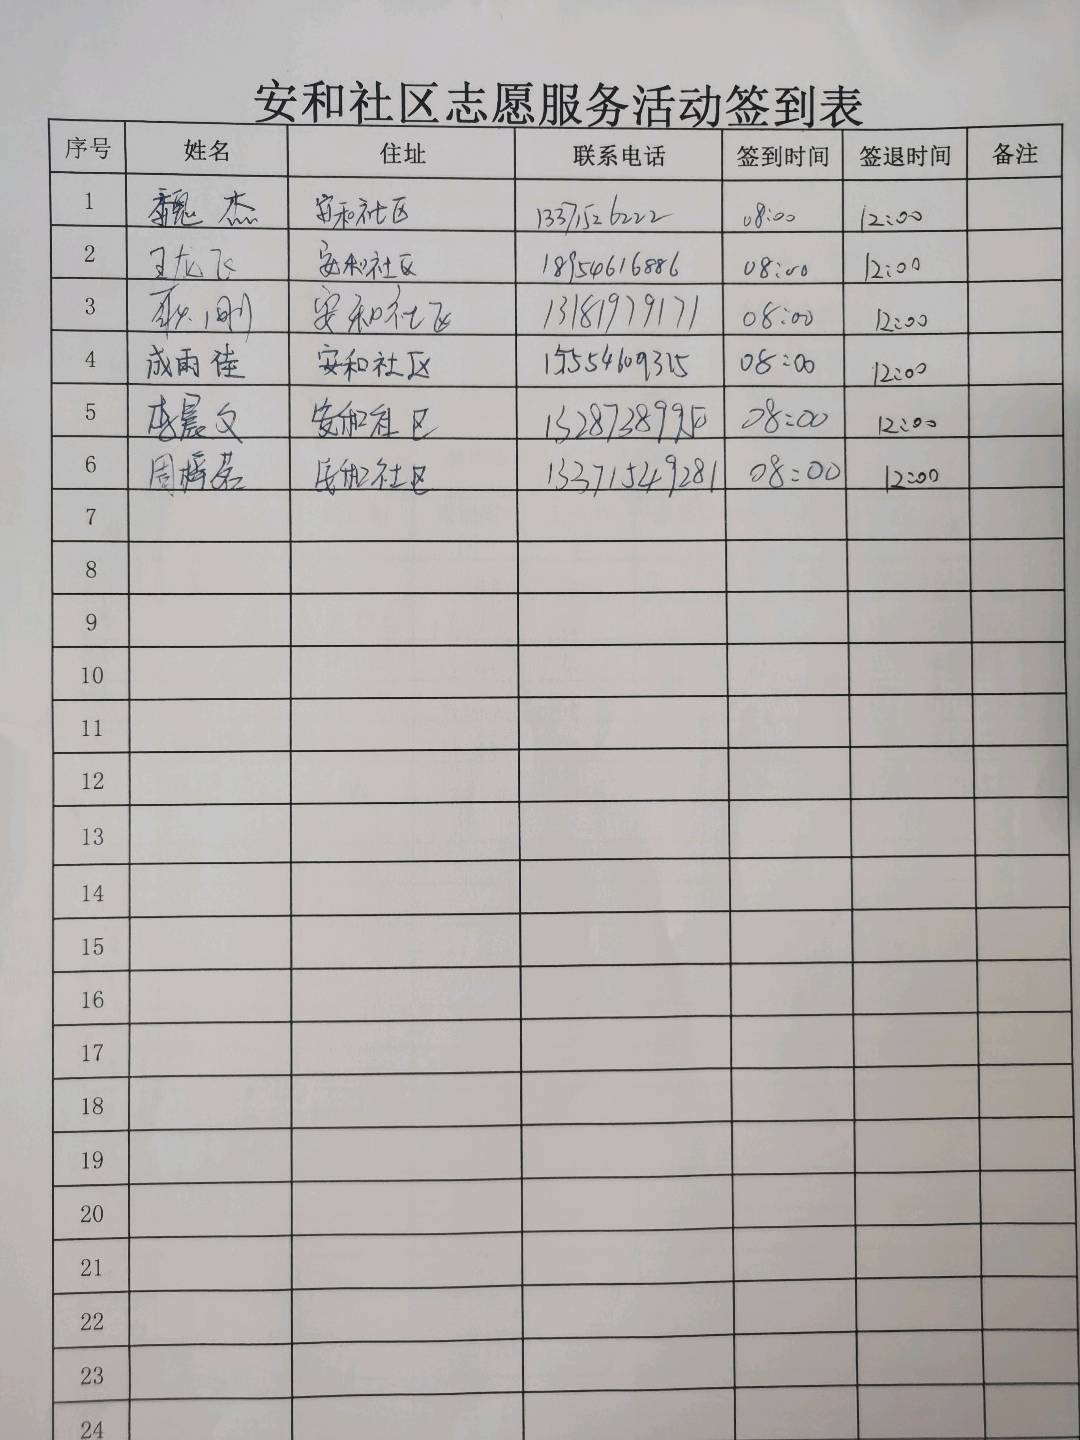 安和社区志愿服务活动签到表
序号 姓名 住址 联系电话 签到时间 签退时间 备注
1 魏杰 安和社区 13371526222 08:00 12:00
2 王龙飞 安和社区 18954616886 08:00 12:00
3 安和社区 13181979171 08:00 12:00
4 成雨佳 安和社区 15554609315 08:00 12:00
5 李晨文 安和社区 08:00 12:00
6 安和社区 13371549281 08:00 12:00
7
8
9
10
11
12
13
14
15
16
17
18
19
20
21
22
23
24